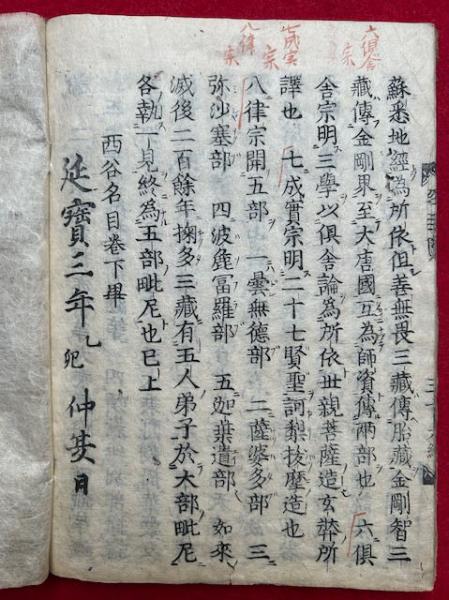 六倶舎宗
七成実宗
八律宗
蘇悉地經為所依但善無畏三藏傳胎藏金剛智三
藏傳金剛界至大唐國互為師資傳兩部也　六倶
舎宗明三學以倶舎論為所依世親菩薩造玄弉所
譯也　七成實宗明二十七賢聖訶梨拔摩造也
八律宗開五部　一曇無德部　二薩婆多部　三
弥沙塞部　四波麁冨羅部　五如葉遺部　如來
滅後二百餘年掬多三藏有五人弟子於大部毗尼
各執一見終為五部毗尼也已上
西谷名目卷下畢
延寶三年乙夘仲𡗗日